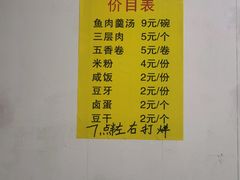 价目表
鱼肉羹汤 9元/碗
三层肉 5元/个
五香卷 5元/卷
米粉 4元/份
咸饭 2元/份
豆牙 2元/份
卤蛋 2元/个
豆干 2元/个
7点左右打烊